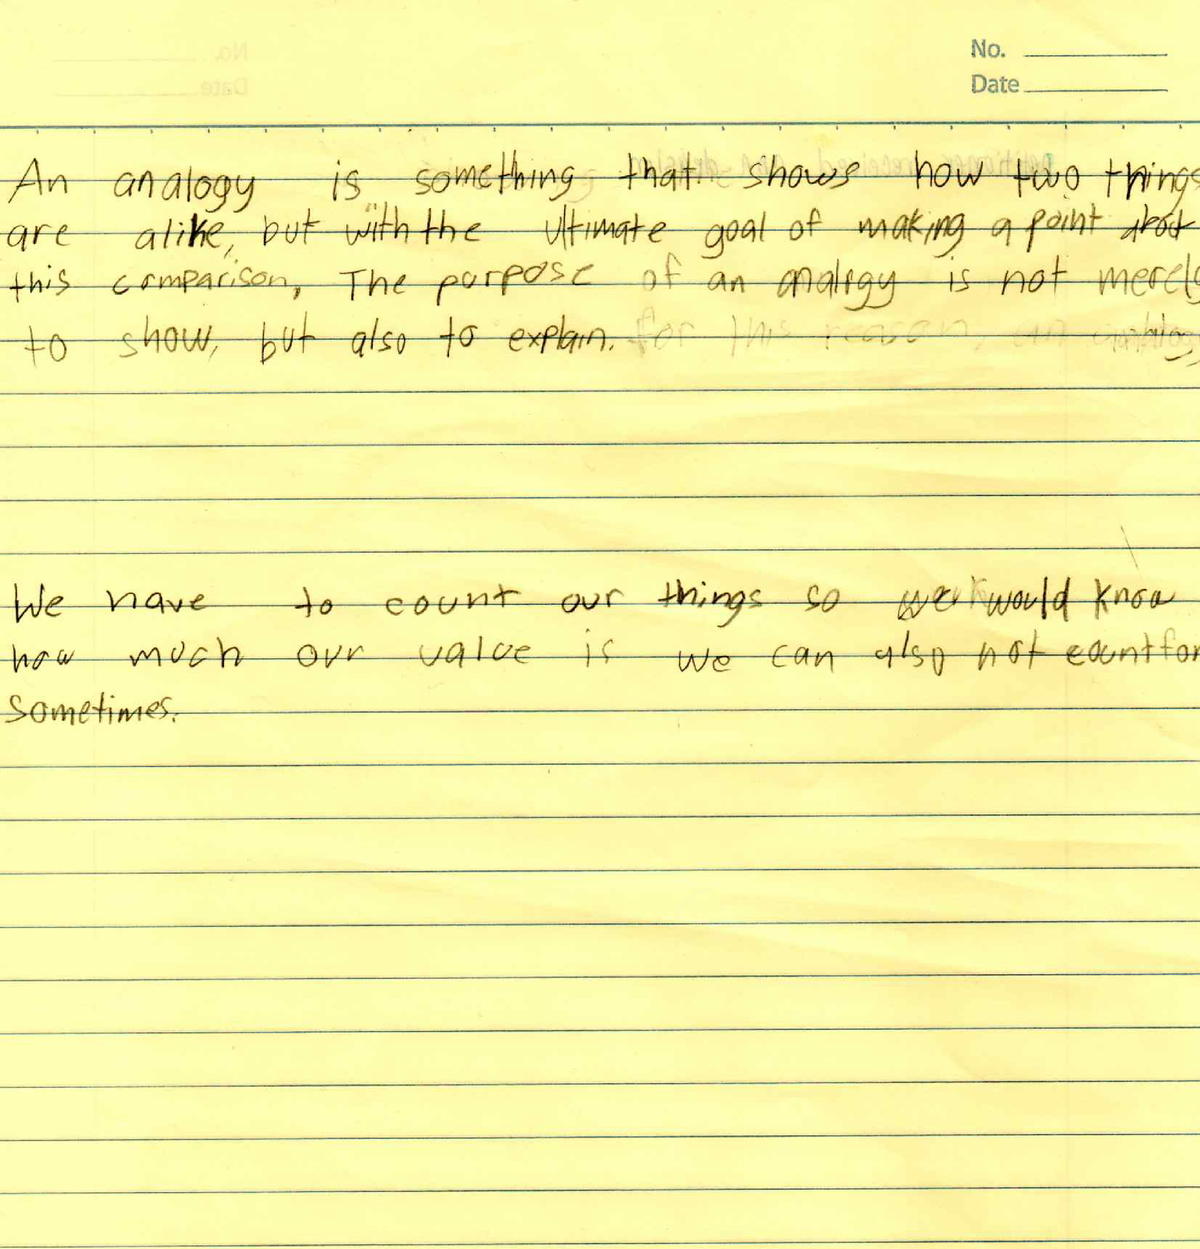 No.
Date
An analogy is something that shows how two things
are alike, but with the ultimate goal of making a point about
this comparison. The purpose of an analogy is not merely
to show, but also to explain. For this reason, an analogy
We have to count our things so we would know
how much our value is we can also not count for
sometimes.